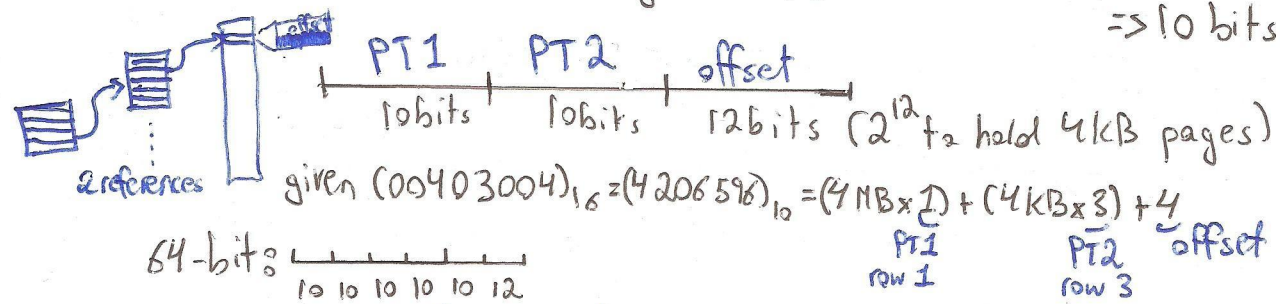 => 10 bits
offset
PT1 PT2 offset
10bits 10bits 12bits (2^12 to hold 4kB pages)
2 references
given (00403004)16 = (4206596)10 = (4MB x 1) + (4kB x 3) + 4
PT1 PT2 offset
row 1 row 3
64-bit:
10 10 10 10 10 12